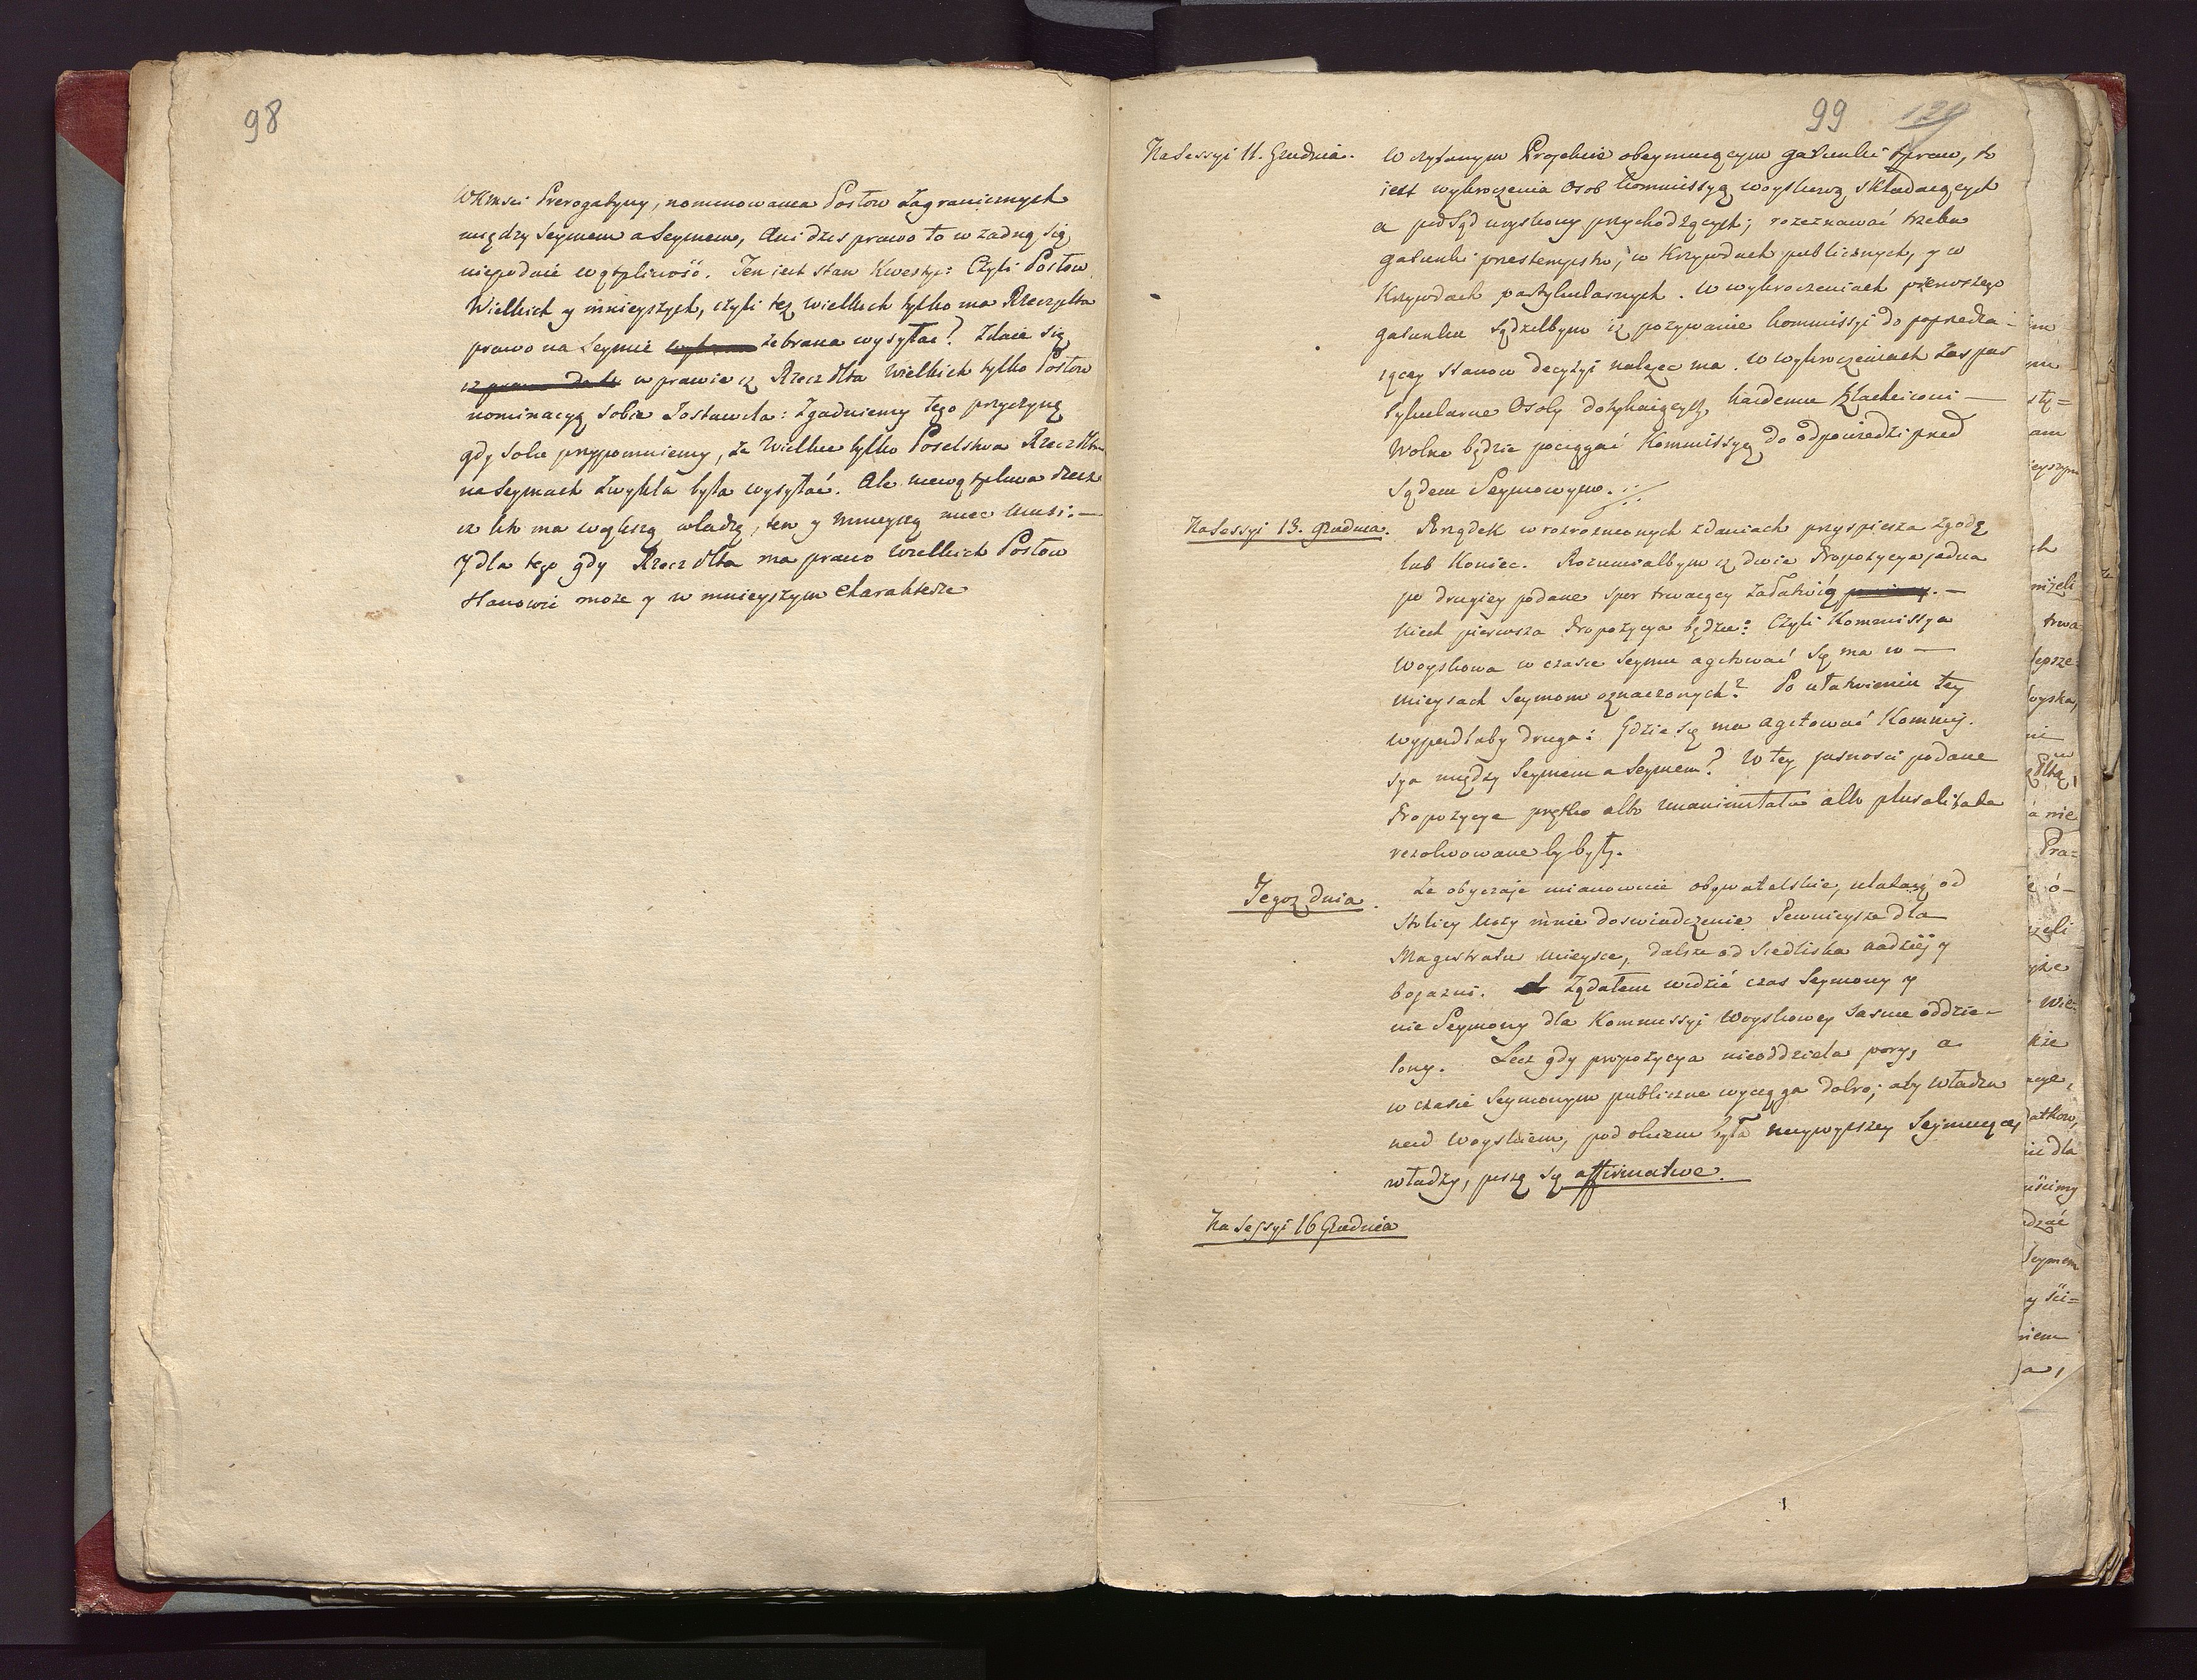 98
WKMsci Prerogatywy, nominowania Posłow Zagranicznych
między Seymem a Seymem, Ani dziś prawo to w zadną się
niepodaie wątpliwość. Ten iest stan Kwestyi: Czyli Posłow
Wielkich y mnieyszych, czyli też wielkich tylko ma Rzeczplta
prawo na Seymie zebrana wysyłać? Zdaie się
w prawie iż Rzeczplta wielkich tylko Posłow
nominacyą sobie zostawiła: Zgadniemy tego przyczynę
gdy sobie przypomniemy, że Wielkie tylko Poselstwa Rzeczplta
na Seymach zwykła była wysyłać. Ale niewątpliwa rzecz
iż kto ma większą władzę, ten y mnieyszą miec musi. —
Y dla tego gdy Rzeczplta ma prawo wielkich Posłow
stanowić może y w mnieyszym charakterze
99 129
Na Sessyi 11. Grudnia.
W czytanym Projekcie obeymuiącym gatunki spraw, to
iest wykroczenia Osob Kommissyą woyskową składaiących
a pod Sąd woyskowy przychodzących; rozeznawać trzeba
gatunki przestempstw, w Krzywdach publicznych, y w
Krzywdach partykularnych. W wykroczeniach pierwszego
gatunku Sądziłbym iż pozywanie Kommissyi do poprzedza-
iącey Stanow decyzyi należec ma. W wykroczeniach zas par
tykularne Osoby dotykaiących, każdemu Szlachcicowi —
Wolno będzie pociągać Kommissyą do odpowiedzi przed
Sądem Seymowym.
Na Sessyi 13. Grudnia.
Porządek w rozroznionych zdaniach przyspiesza zgodę
lub Koniec. Rozumiałbym iż dwie Propozycye jedna
po drugiey podane spor trwaiący załatwią. —
Niech pierwsza Propozycya będzie: Czyli Kommissya
Woyskowa w czasie Seymu agitować się ma w —
mieyscach Seymom oznaczonych? Po ułatwieniu tey
wypadłaby druga: Gdzie się ma agitować Kommis.
sya między Seymem a Seymem? W tey jasnosci podane
Propozycye prętko albo unanimitate albo pluralitate
rezolwowane by były.
Tegoż dnia.
Ze obyczaje mianowicie obywatelskie, ulatuią od
Stolicy uczy mnie doswiadczenie. Pewnieysze dla
Magistratu mieysce, dalsze od Siedliska nadziej y
bojazni. Żądałem widzić czas Seymowy y
nie Seymowy dla Kommissyi Woyskowey Jasnie oddzie-
lony. Lecz gdy propozycya nieoddziela pory, a
w czasie Seymowym publiczne wyciąga dobro; aby władza
nad Woyskiem, pod okiem była naywyższey Seymuiącej
władzy, piszę się affirmative.
Na Sessyi 16 Grudnia